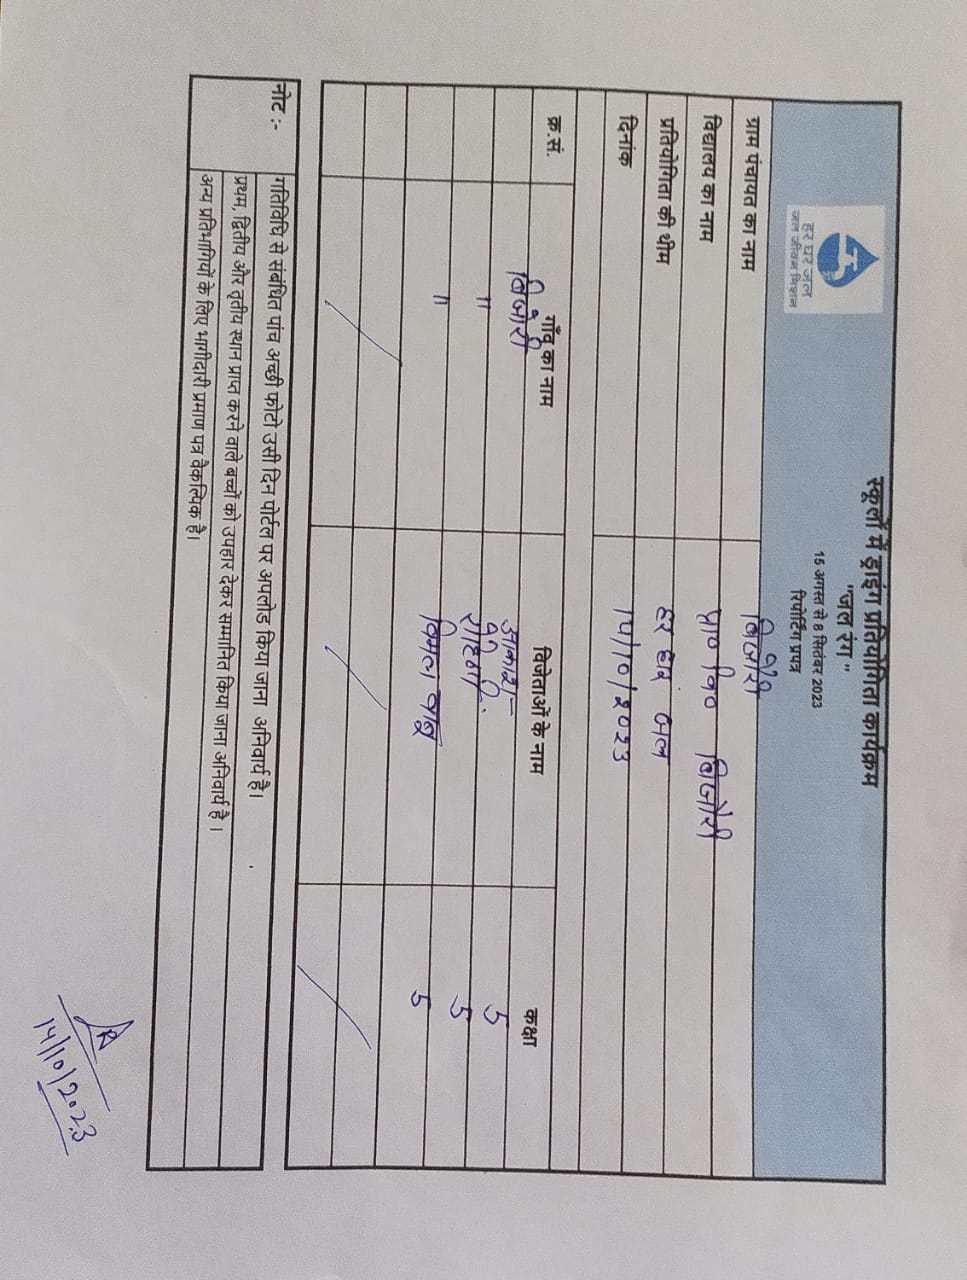 स्कूलों में ड्राइंग प्रतियोगिता कार्यक्रम
"जल रंग "
15 अगस्त से 8 सितंबर 2023
रिपोर्टिंग प्रपत्र
हर घर जल
जल जीवन मिशन
ग्राम पंचायत का नाम बिजोरी
विद्यालय का नाम प्रा० वि० बिजोरी
प्रतियोगिता की थीम हर घर जल
दिनांक 14/10/2023
क्र.सं. गाँव का नाम विजेताओं के नाम कक्षा
बिजोरी आकाश 5
" रोहिणी 5
" विमल 5
नोट :- गतिविधि से संबंधित पांच अच्छी फोटो उसी दिन पोर्टल पर अपलोड किया जाना अनिवार्य है।
प्रथम, द्वितीय और तृतीय स्थान प्राप्त करने वाले बच्चों को उपहार देकर सम्मानित किया जाना अनिवार्य है ।
अन्य प्रतिभागियों के लिए भागीदारी प्रमाण पत्र वैकल्पिक है।
14/10/2023